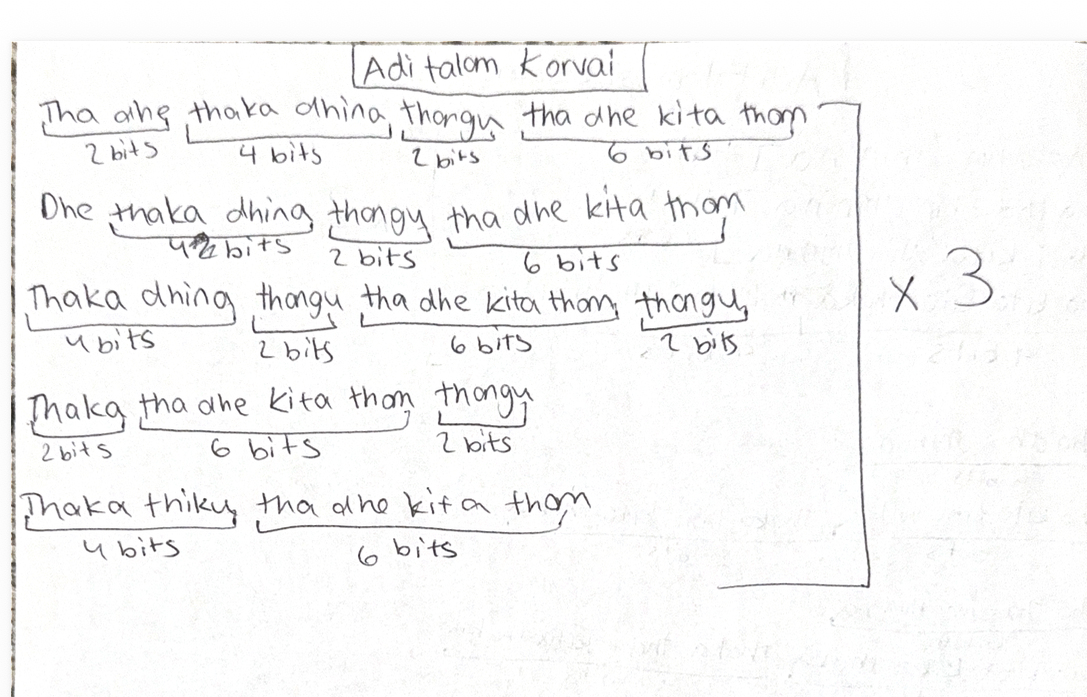 Adi talam Korvai
Tha dhe thaka dhina thongu tha dhe kita thom
2 bits 4 bits 2 bits 6 bits
Dhe thaka dhina thongu tha dhe kita thom
4 bits 2 bits 6 bits
x 3
Thaka dhina thongu tha dhe kita thom thongu
4 bits 2 bits 6 bits 2 bits
Thaka tha dhe kita thom thongu
2 bits 6 bits 2 bits
Thaka thiku tha dhe kita thom
4 bits 6 bits